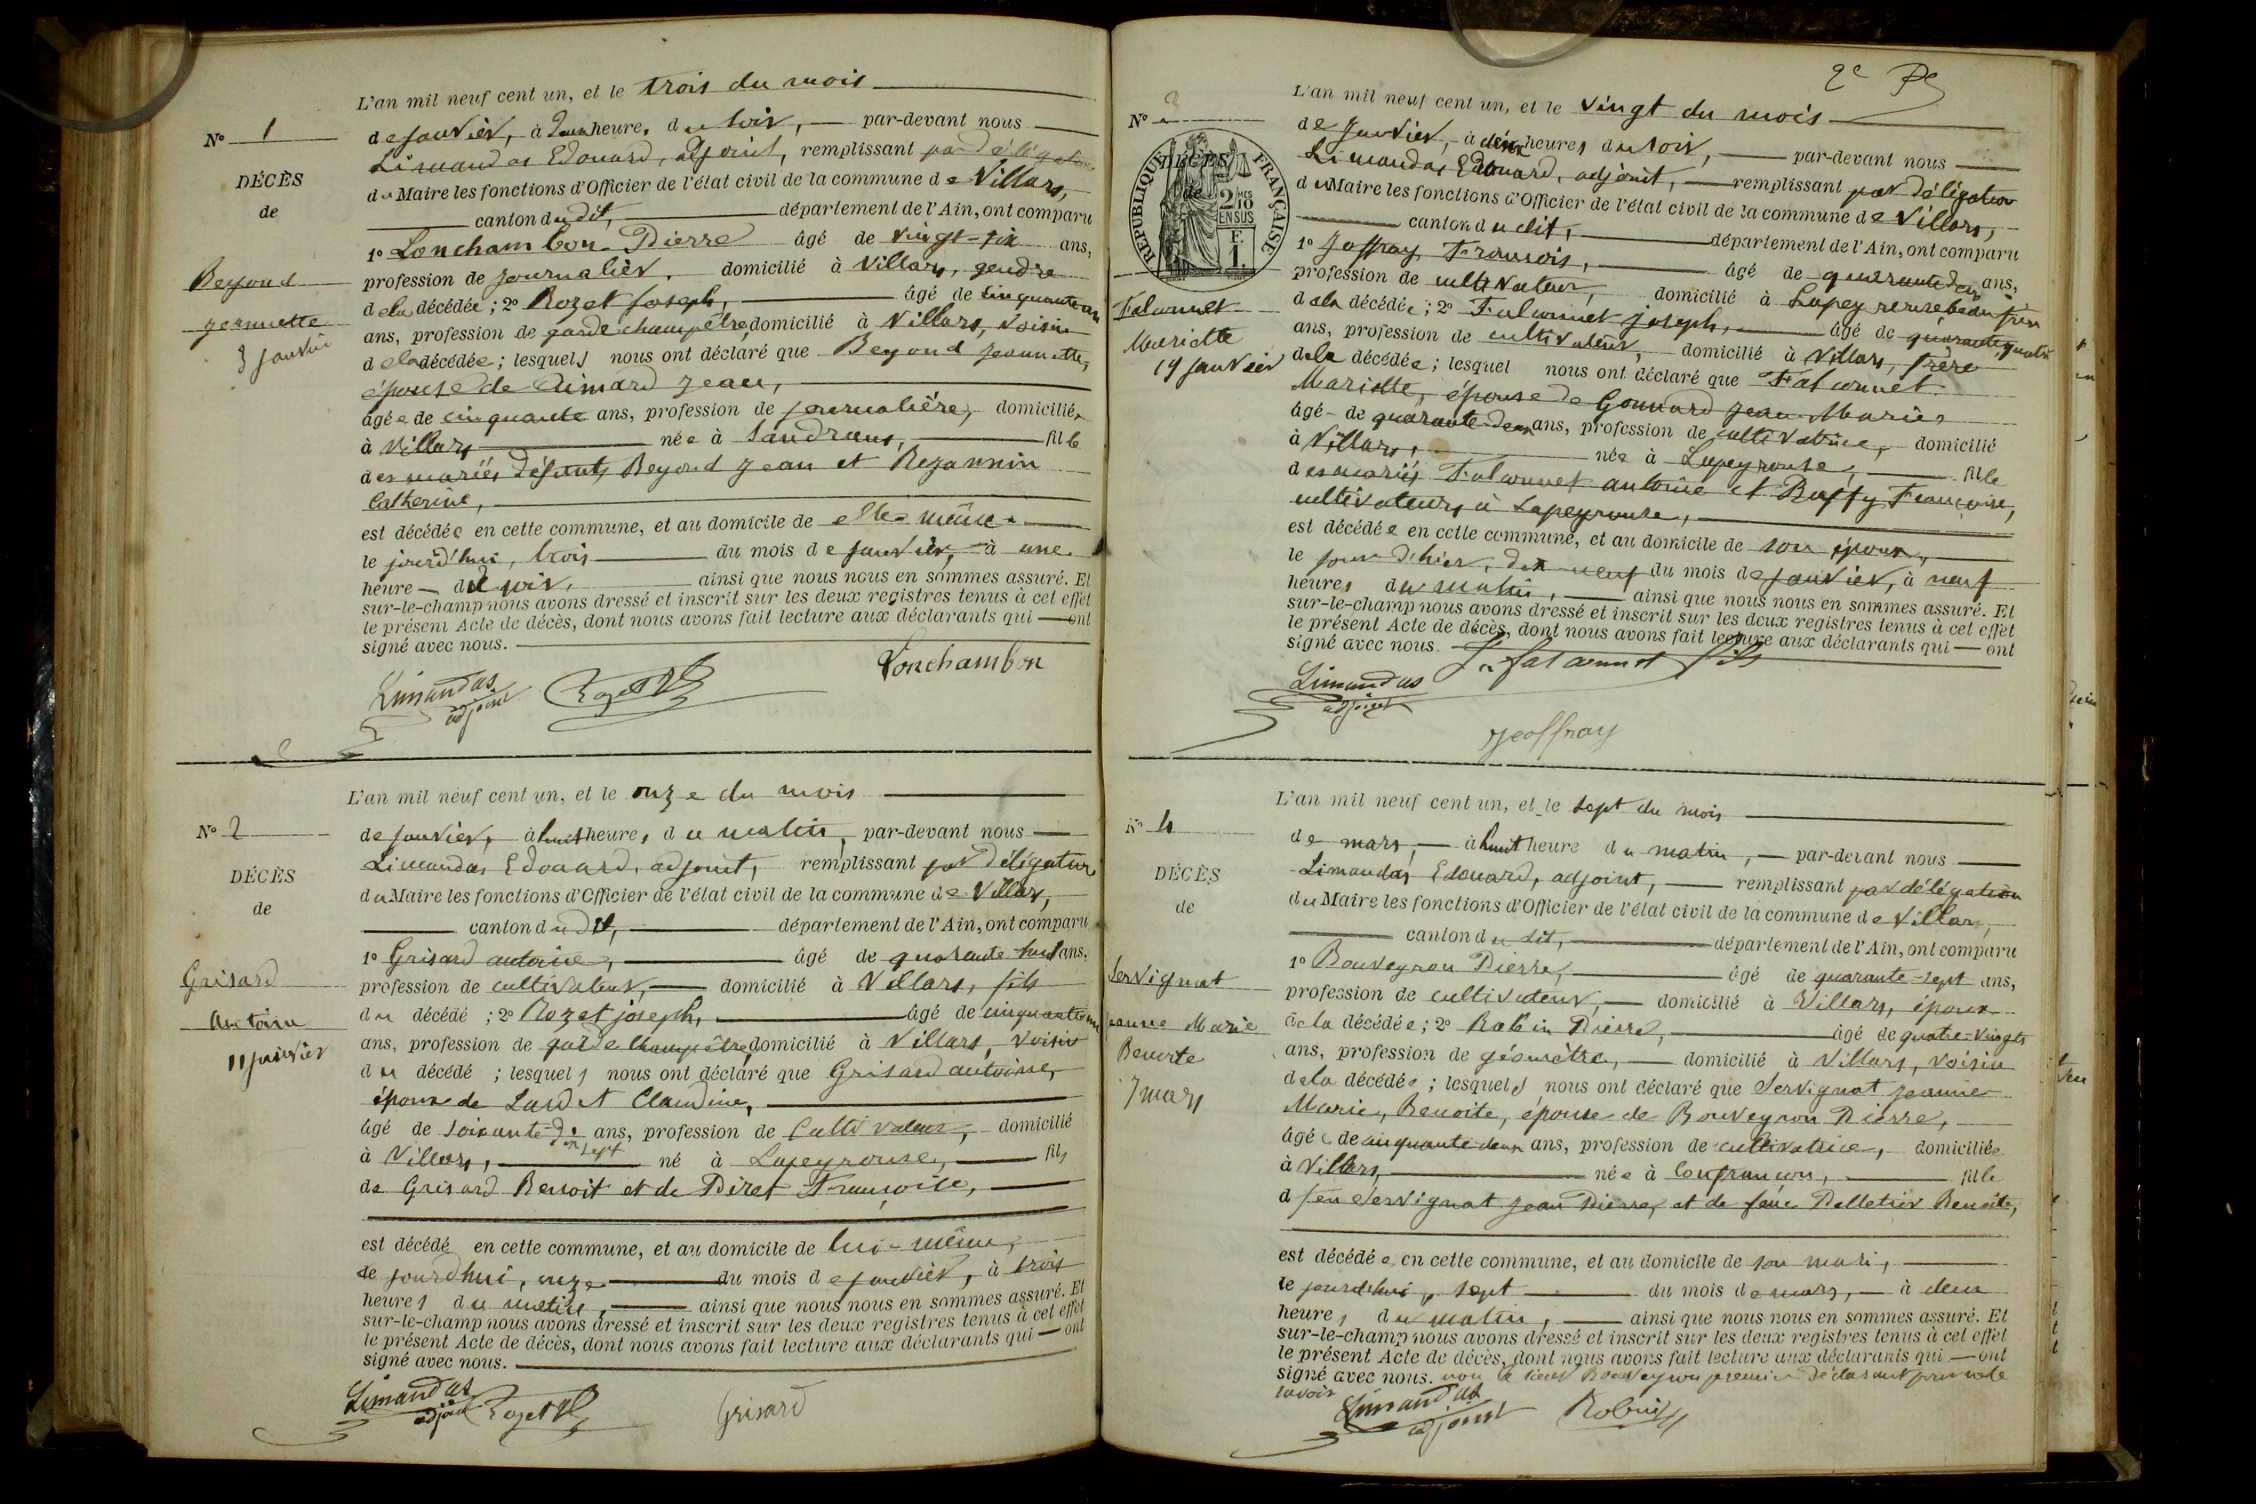 L'an mil neuf cent un, et le trois du mois
N° 1
de janvier, à deux heures du soir, par-devant nous
Limandas Edouard, adjoint, remplissant par délégation
DÉCÈS
du Maire les fonctions d'Officier de l'état civil de la commune de Villars,
de
canton dudit, département de l'Ain, ont comparu
1° Lonchambon Pierre âgé de vingt-six ans,
Beyond
profession de journalier, domicilié à Villars, gendre
de la décédée ; 2° Rozet Joseph, âgé de cinquante
Jeannette
ans, profession de garde champêtre, domicilié à Villars, voisin
3 janvier
de la décédée ; lesquels nous ont déclaré que Beyond Jeannette,
épouse de Aimard Jean,
âgée de cinquante ans, profession de journalière, domiciliée
à Villars née à Sandrans, fille
des mariés défunts Beyond Jean et Rezannin
Catherine,
est décédée en cette commune, et au domicile de elle-même
le jourd'hui, trois du mois de janvier, à une
heure du soir, ainsi que nous nous en sommes assuré. Et
sur-le-champ nous avons dressé et inscrit sur les deux registres tenus à cet effet
le présent Acte de décès, dont nous avons fait lecture aux déclarants qui ont
signé avec nous.
Limandas adjoint Rozet Lonchambon
L'an mil neuf cent un, et le onze du mois
N° 2
de janvier, à huit heures du matin, par-devant nous
Limandas Edouard, adjoint, remplissant par délégation
DÉCÈS
du Maire les fonctions d'Officier de l'état civil de la commune de Villars,
de
canton dudit, département de l'Ain, ont comparu
1° Grisard antoine, âgé de quarante huit ans,
Grisard
profession de cultivateur, domicilié à Villars, fils
du décédé ; 2° Rozet joseph, âgé de cinquante
antoine
ans, profession de garde champêtre, domicilié à Villars, voisin
11 janvier
du décédé ; lesquels nous ont déclaré que Grisard antoine,
époux de Lardet Claudine,
âgé de soixante-dix sept ans, profession de Cultivateur, domicilié
à Villars, né à Lapeyrouse, fils
de Grisard Benoit et de Piret Françoise,
est décédé en cette commune, et au domicile de lui-même,
le jourd'hui, onze du mois de janvier, à trois
heures du matin, ainsi que nous nous en sommes assuré. Et
sur-le-champ nous avons dressé et inscrit sur les deux registres tenus à cet effet
le présent Acte de décès, dont nous avons fait lecture aux déclarants qui ont
signé avec nous.
Limandas adjoint Rozet Grisard
L'an mil neuf cent un, et le vingt du mois
N°
de janvier, à deux heures du soir, par-devant nous
Limandas Edouard, adjoint, remplissant par délégation
DÉCÈS
de
RÉPUBLIQUE FRANÇAISE
2 MES 10 EN SUS
F. 1.
du Maire les fonctions d'Officier de l'état civil de la commune de Villars,
canton dudit, département de l'Ain, ont comparu
1° Joffray François, âgé de quarante deux ans,
profession de cultivateur, domicilié à Lapeyrouse beau frère
Falconnet
de la décédée ; 2° Falconnet joseph, âgé de quarante quatre
Mariette
ans, profession de cultivateur, domicilié à Villars, frère
19 janvier
de la décédée ; lesquel nous ont déclaré que Falconnet
Mariette, épouse de Gonnard Jean-Marie,
âgé de quarante deux ans, profession de cultivatrice, domicilié
à Villars, née à Lapeyrouse, fille
des mariés Falconnet antoine et Buffy Françoise,
cultivateurs à Lapeyrouse,
est décédée en cette commune, et au domicile de son époux,
le jour d'hier, dix neuf du mois de janvier, à neuf
heures du matin, ainsi que nous nous en sommes assuré. Et
sur-le-champ nous avons dressé et inscrit sur les deux registres tenus à cet effet
le présent Acte de décès, dont nous avons fait lecture aux déclarants qui ont
signé avec nous.
Limandas adjoint Falconnet fils
Jeoffray
L'an mil neuf cent un, et le sept du mois
N° 4
de mars, à huit heure du matin, par-devant nous
Limandas Edouard, adjoint, remplissant par délégation
DÉCÈS
du Maire les fonctions d'Officier de l'état civil de la commune de Villars,
de
canton dudit, département de l'Ain, ont comparu
1° Bouveyron Pierre, âgé de quarante-sept ans,
Servignat
profession de cultivateur, domicilié à Villars, époux
jeanne Marie
de la décédée ; 2° Robin Pierre, âgé de quatre-vingts
Benoite
ans, profession de géomètre, domicilié à Villars, voisin
7 mars
de la décédée ; lesquels nous ont déclaré que Servignat jeanne
Marie, Benoite, épouse de Bouveyron Pierre,
âgée de cinquante-deux ans, profession de cultivatrice, domiciliée
à Villars, née à Confrançon, fille
d feu Servignat jean Pierre, et de feue Pelletier Benoite,
est décédée en cette commune, et au domicile de son mari,
le jourd'hui, sept du mois de mars, à deux
heures du matin, ainsi que nous nous en sommes assuré. Et
sur-le-champ nous avons dressé et inscrit sur les deux registres tenus à cet effet
le présent Acte de décès, dont nous avons fait lecture aux déclarants qui ont
signé avec nous. non le sieur Bouveyron premier déclarant pour ne le
savoir
Limandas adjoint Robin